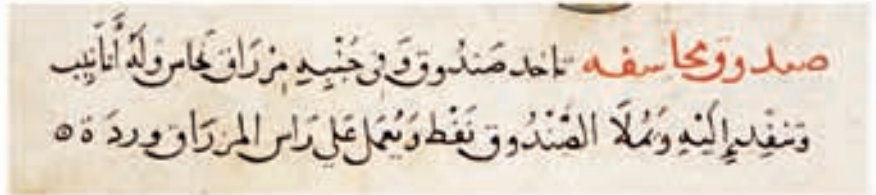 صندوق مخاسفه تاخد صَندُوق وَفي جَنْبِهِ مزْرَاق نحاس وَلَهُ أنَابِيب
وَتنفِدِ إِلَيْهِ وَتُملَا الصَّنْدُوق نَفْط وَيُعمَل عَلى رَاس المزرَاق وردَة ه